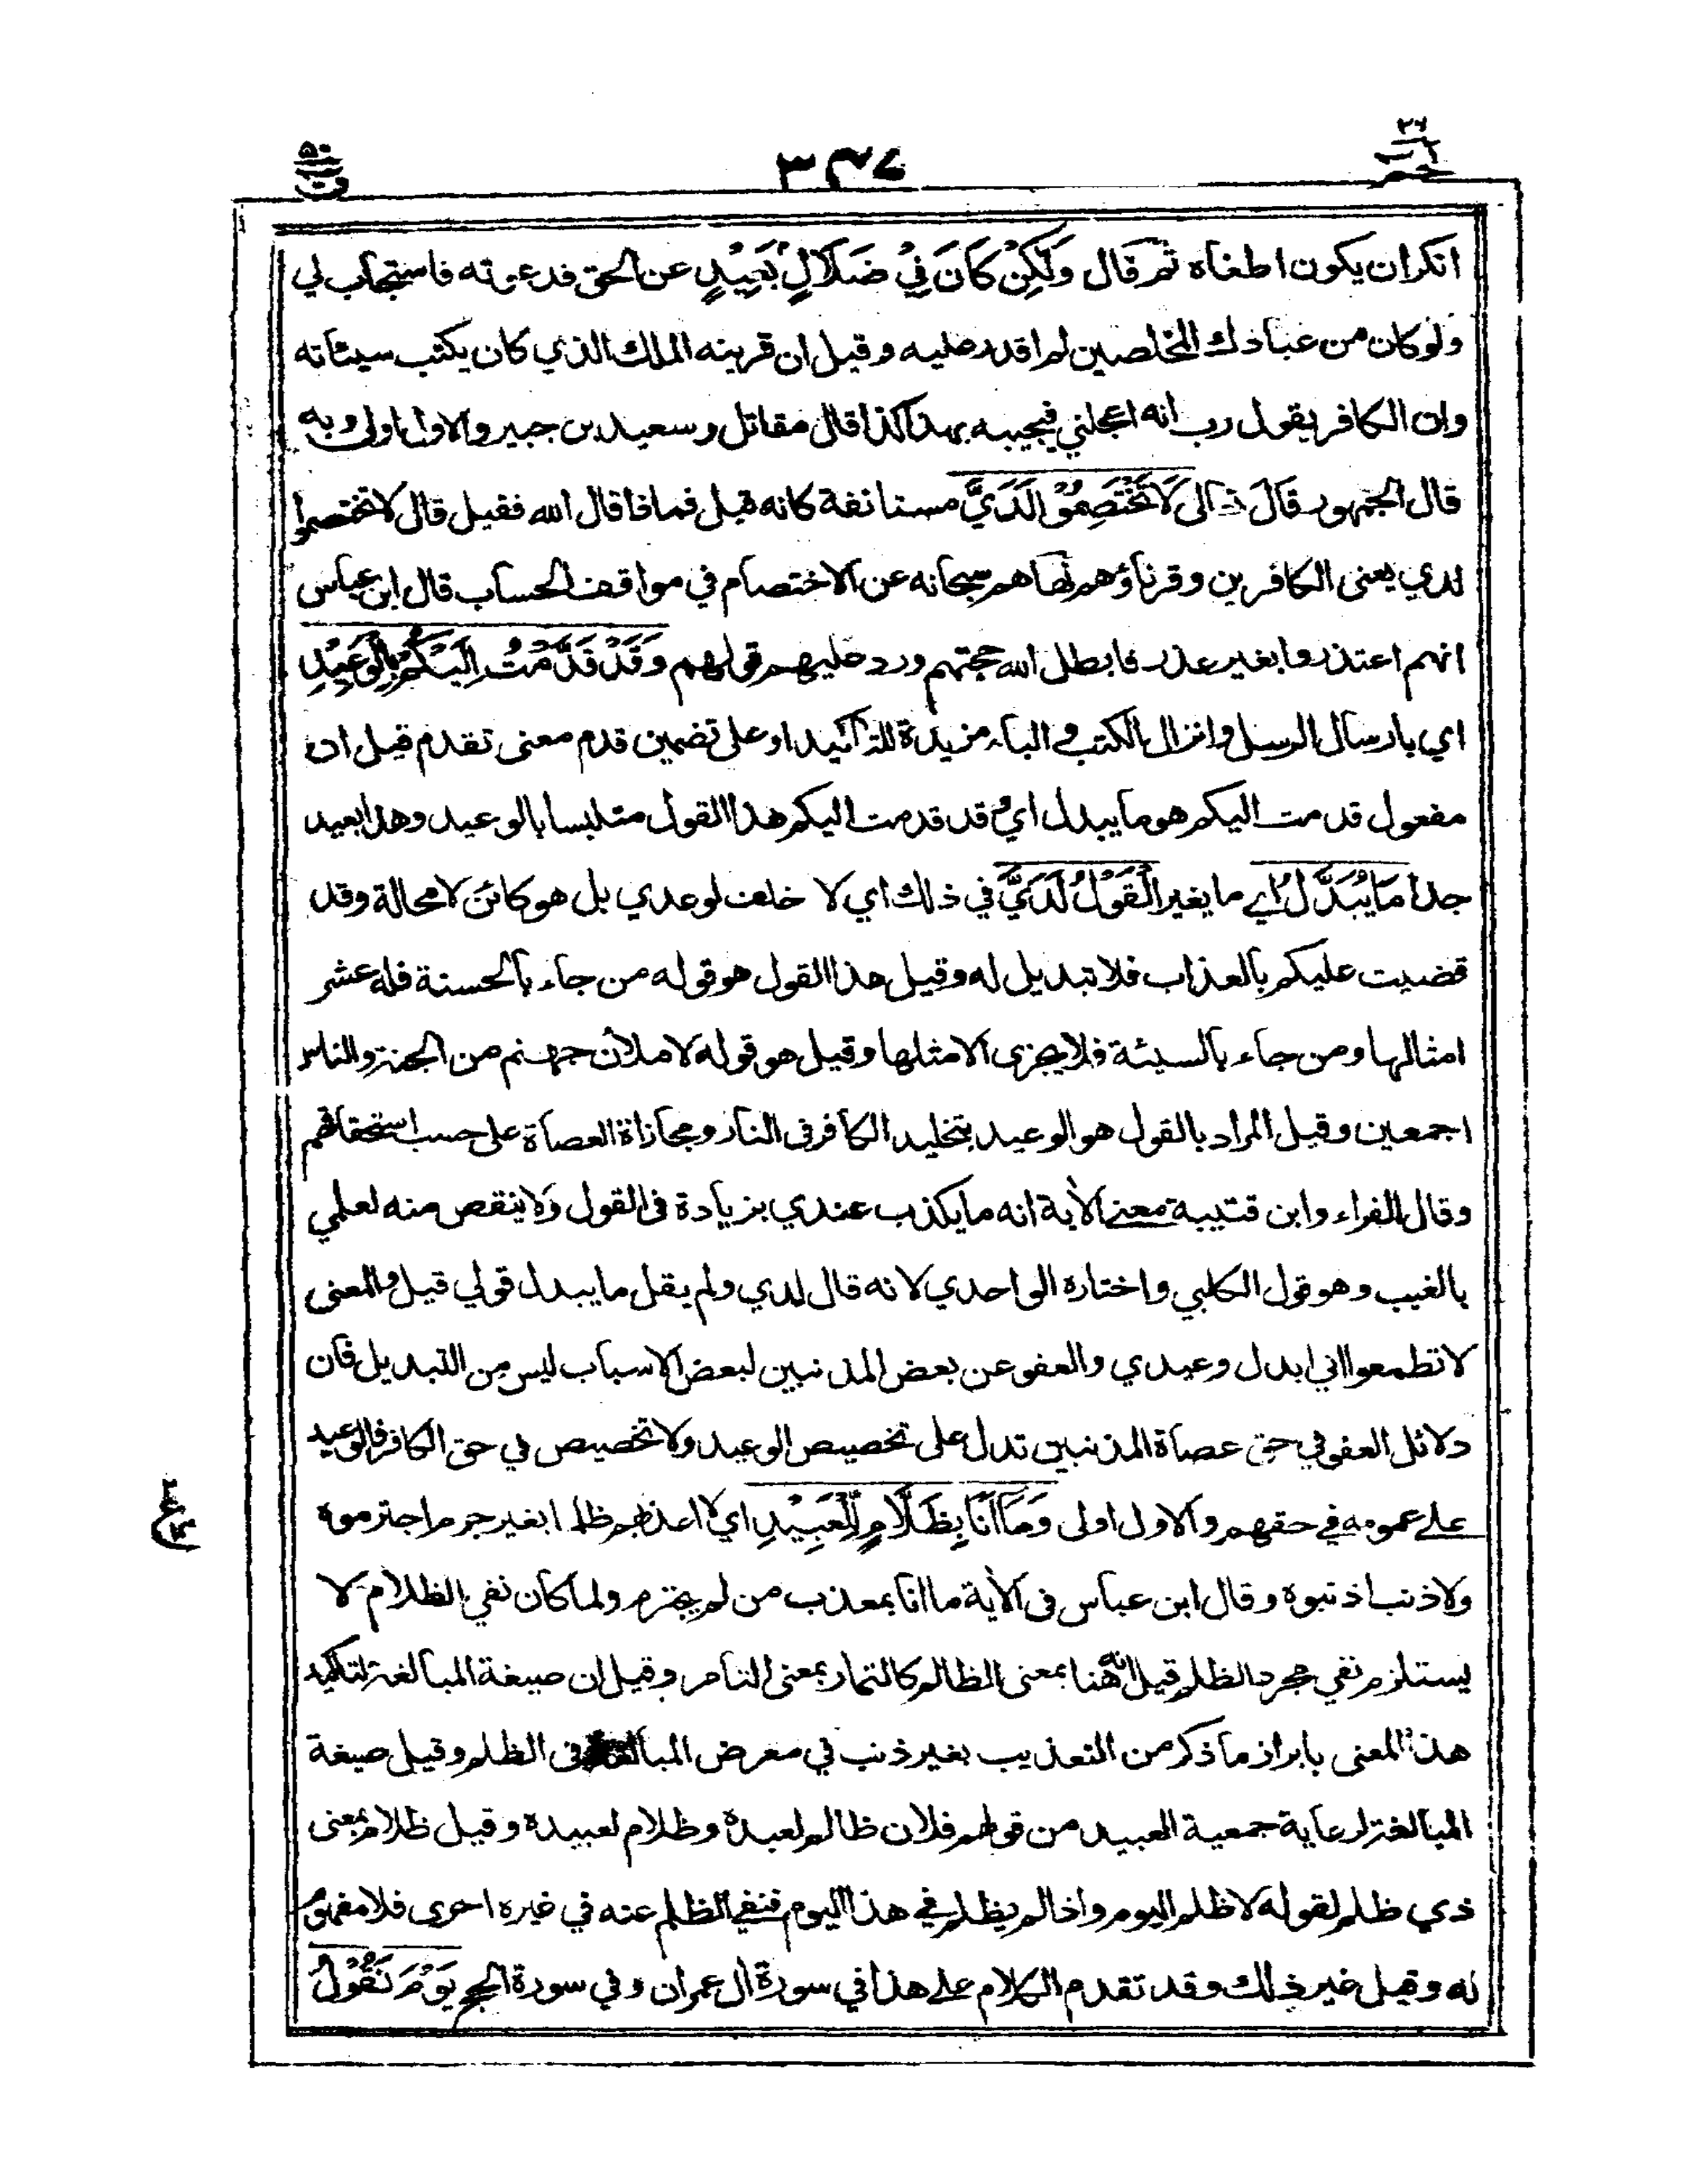 حم ٢٦
٣٤٧
ق ٥٠
انكران يكون اطغاه ثم قال وَلٰكِنْ كَانَ فِيْ ضَلَالٍۭ بَعِيْدٍ عن الحق فدعوته فاستجاب لي
ولو كان من عبادك المخلصين لم اقدر عليه وقيل ان قرينه الملك الذي كان يكتب سيئاته
وان الكافر يقول رب انه اعجلني فيجيبه بهذا كذا قال مقاتل وسعيد بن جبير والاول اولى وبه
قال الجمهور قَالَ تعالى لَا تَخْتَصِمُوْا لَدَيَّ مستانفة كانه قيل فماذا قال الله فقيل قال لا تختصموا
لدي يعنى الكافرين وقرناؤهم نهاهم سبحانه عن الاختصام في مواقف الحساب قال ابن عباس
انهم اعتذروا بغير عذر فابطل الله حجتهم ورد عليهم قولهم وَقَدْ قَدَّمْتُ اِلَيْكُمْ بِالْوَعِيْدِ
اي بارسال الرسل وانزال الكتب والباء مزيدة للتاكيد او على تضمين قدم معنى تقدم قيل ان
مفعول قدمت اليكم هو ما يبدل اي وقد قدمت اليكم هذا القول متلبسا بالوعيد وهذا بعيد
جدا مَا يُبَدَّلُ اي ما يغير الْقَوْلُ لَدَيَّ في ذلك اي لا خلف لوعدي بل هو كائن لا محالة وقد
قضيت عليكم بالعذاب فلا تبديل له وقيل هذا القول هو قوله من جاء بالحسنة فله عشر
امثالها ومن جاء بالسيئة فلا يجزى الا مثلها وقيل هو قوله لاملان جهنم من الجنة والناس
اجمعين وقيل المراد بالقول هو الوعيد بتخليد الكافر فى النار ومجازاة العصاة على حسب استحقاقهم
وقال الفراء وابن قتيبة معنى الآية انه ما يكذب عندي بزيادة فى القول ولا ينقص منه لعلمي
بالغيب وهو قول الكلبي واختاره الواحدي لانه قال لدي ولم يقل ما يبدل قولي قيل والمعنى
لا تطمعوا اني ابدل وعيدي والعفو عن بعض المذنبين لبعض الاسباب ليس من التبديل فان
دلائل العفو في حق عصاة المذنبين تدل على تخصيص الوعيد ولا تخصيص في حق الكافر فالوعيد
على عمومه في حقهم والاول اولى وَمَا اَنَا بِظَلَّامٍ لِّلْعَبِيْدِ اي لا اعذبهم ظلما بغير جرم اجترموه
ولا ذنب اذنبوه وقال ابن عباس فى الآية ما انا بمعذب من لم يجترم ولما كان نفي الظلام لا
يستلزم نفي مجرد الظلم قيل انه هنا بمعنى الظالم كالتمار بمعنى التامر وقيل ان صيغة المبالغة لتاكيد
هذا المعنى بابراز ما ذكر من التعذيب بغير ذنب في معرض المبالغة فى الظلم وقيل صيغة
المبالغة لرعاية جمعية العبيد من قولهم فلان ظالم لعبده وظلام لعبيده وقيل ظلام بمعنى
ذي ظلم لقوله لا ظلم اليوم واذا لم يظلم في هذا اليوم فنفي الظلم عنه في غيره احرى فلا مفهوم
له وقيل غير ذلك وقد تقدم الكلام على هذا في سورة ال عمران وفي سورة الحج يَوْمَ نَقُوْلُ